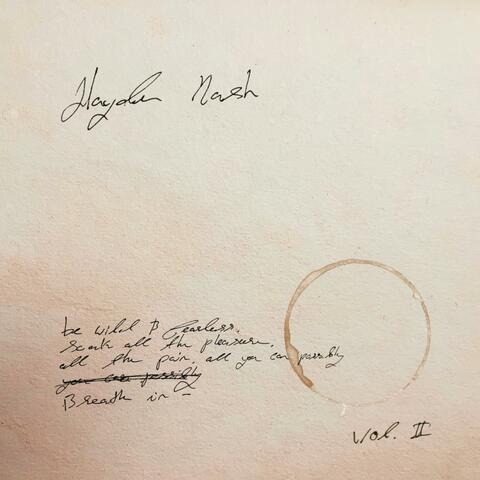 Hayden Nash
be wild & fearless.
Soak all the pleasure,
all the pain, all you can possibly
you can possibly
Breath in -
Vol. II